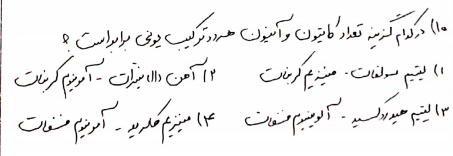 ۱۰) در کدام گزینه تعداد کاتیون و آنیون هر دو ترکیب یونی برابر است؟
۱) لیتیم سولفات - منیزیم کربنات ۲) آهن (II) نیترات - آمونیوم کربنات
۳) لیتیم هیدروکسید - آلومینیوم فسفات ۴) منیزیم کلرید - آمونیوم فسفات